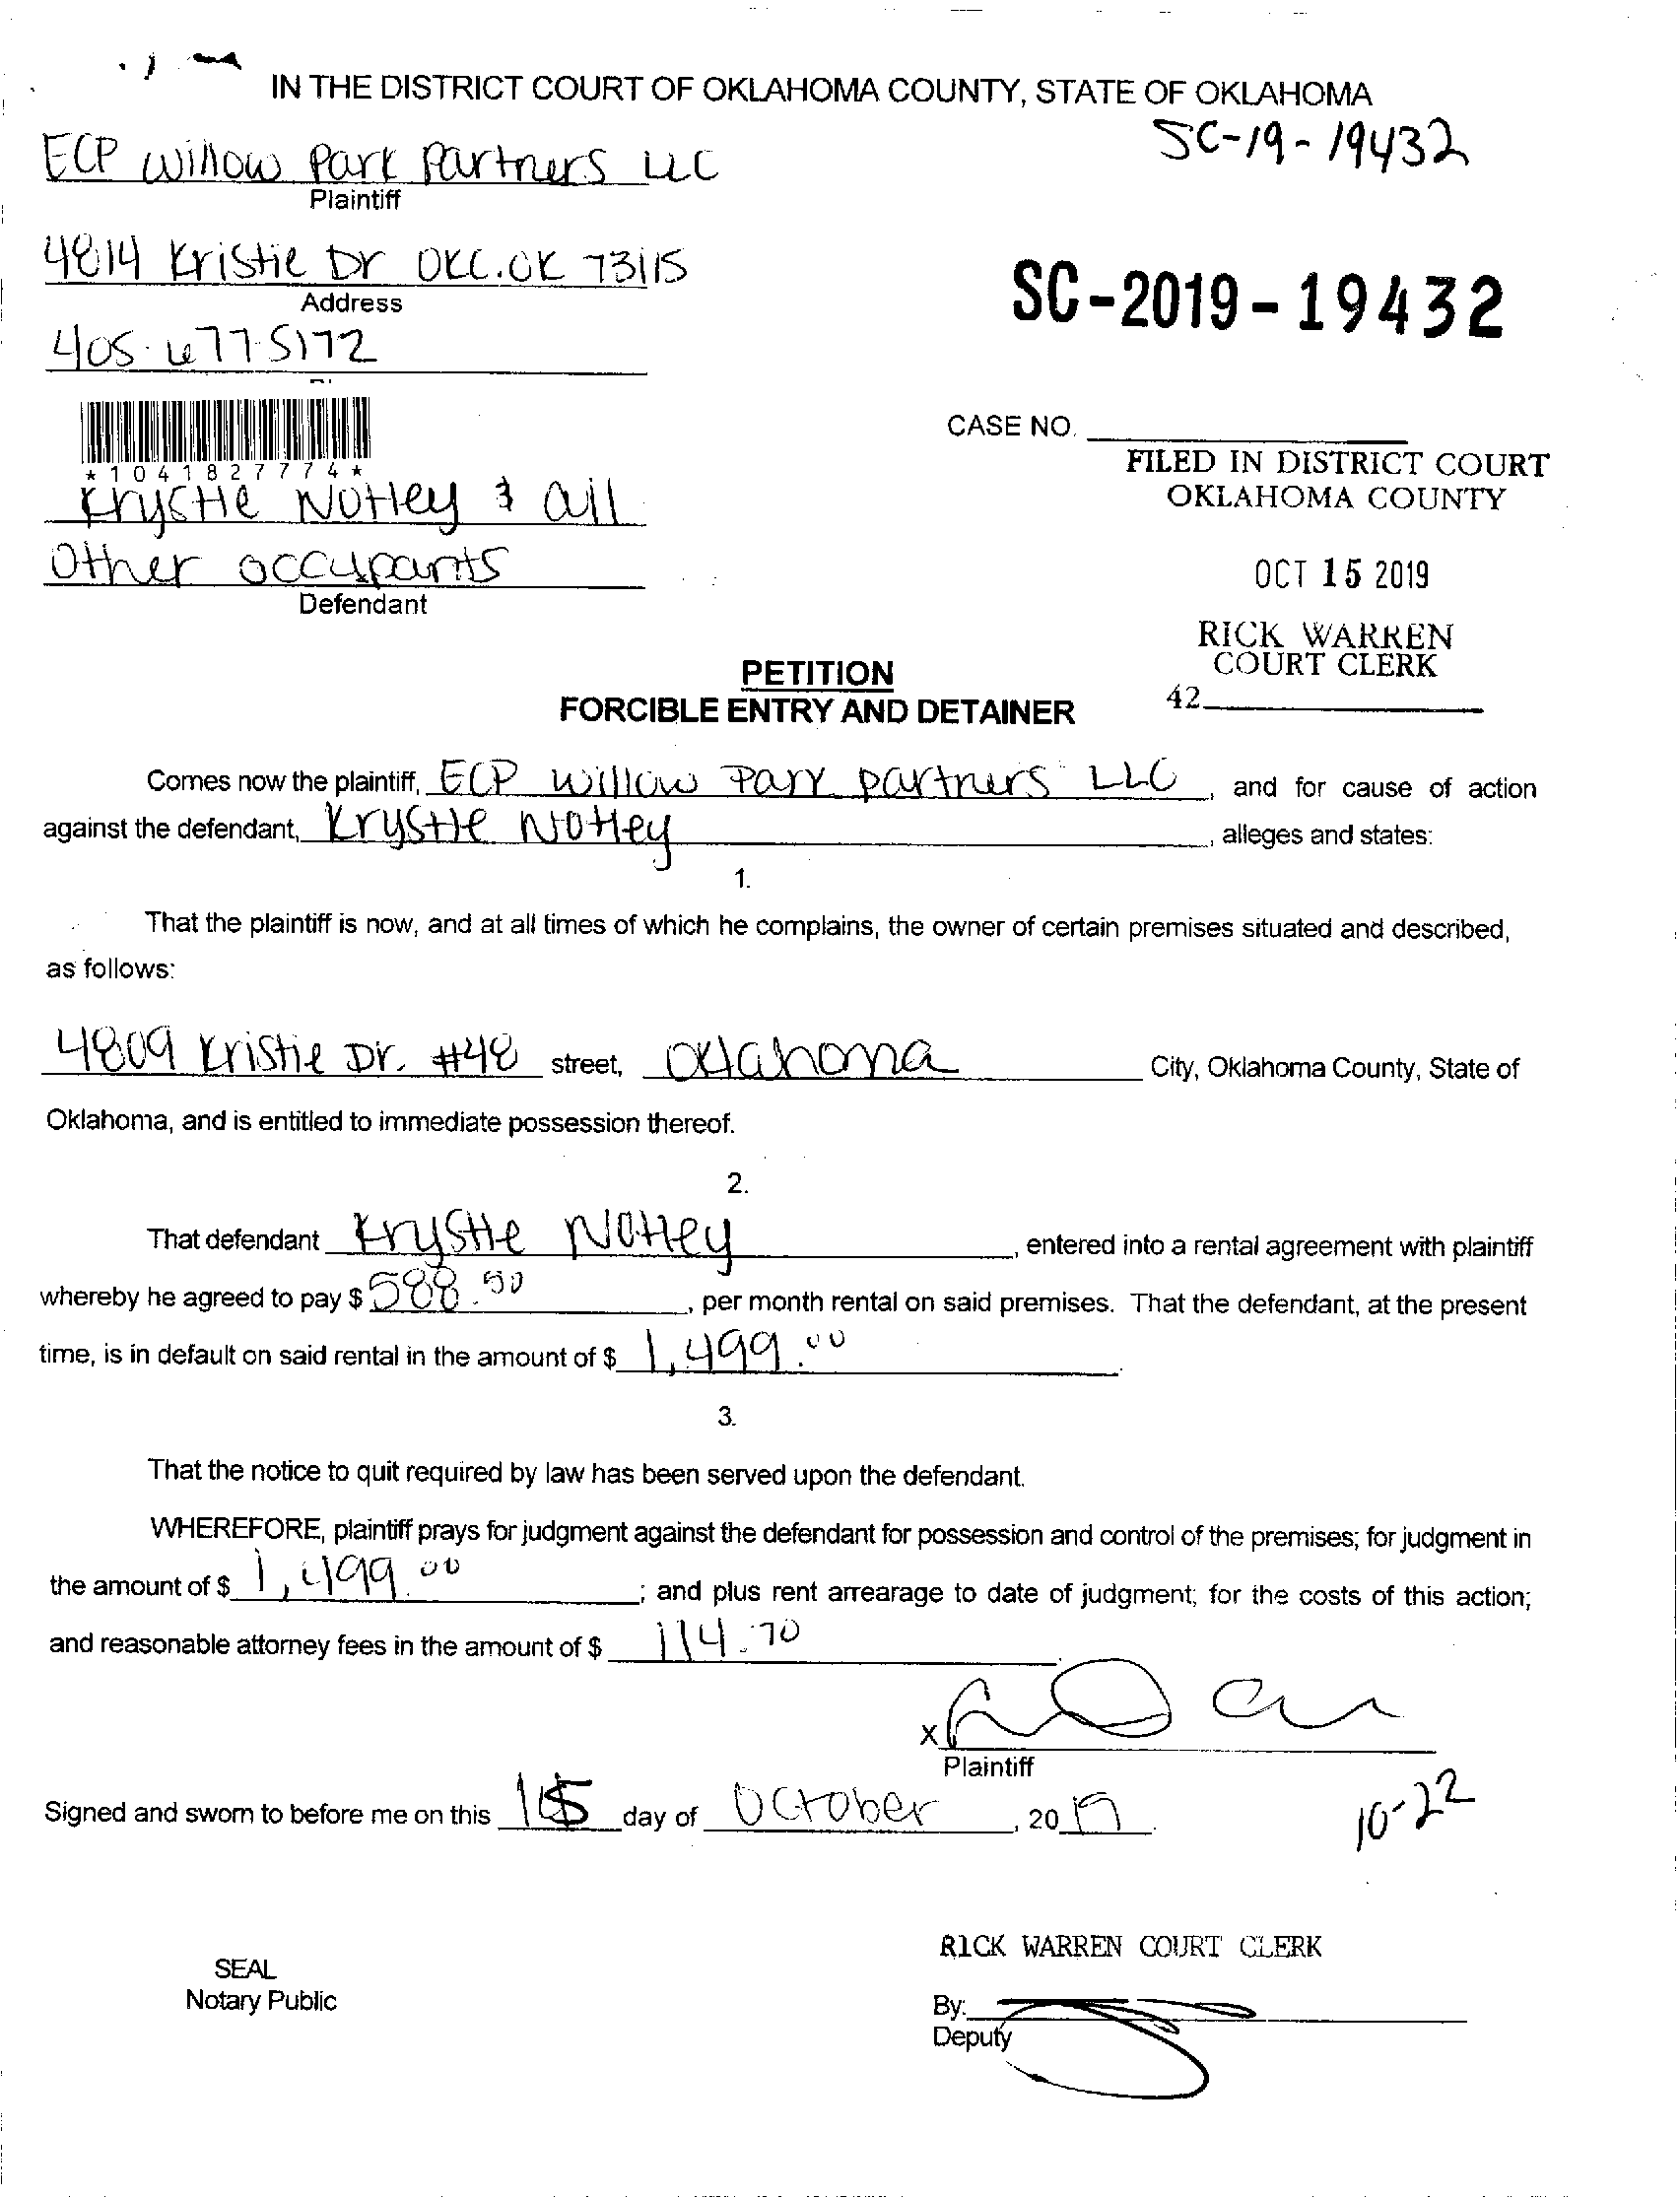 IN THE DISTRICT COURT OF OKLAHOMA COUNTY, STATE OF OKLAHOMA
SC-19-19432
ECP Willow Park Partners LLC
Plaintiff
4814 Kristie Dr OKC.OK 73115
Address
SC-2019-19432
405-677-5172
CASE NO.
*1041827774*
FILED IN DISTRICT COURT
OKLAHOMA COUNTY
Krystle Notley & all
Other occupants
Defendant
OCT 15 2019
RICK WARREN
COURT CLERK
42
PETITION
FORCIBLE ENTRY AND DETAINER
Comes now the plaintiff, ECP Willow Park partners LLC, and for cause of action
against the defendant, Krystle Notley, alleges and states:
1.
That the plaintiff is now, and at all times of which he complains, the owner of certain premises situated and described,
as follows:
4809 Kristie Dr. #48 street, Oklahoma City, Oklahoma County, State of
Oklahoma, and is entitled to immediate possession thereof.
2.
That defendant Krystle Notley, entered into a rental agreement with plaintiff
whereby he agreed to pay $ 588.50, per month rental on said premises. That the defendant, at the present
time, is in default on said rental in the amount of $ 1,499.00.
3.
That the notice to quit required by law has been served upon the defendant.
WHEREFORE, plaintiff prays for judgment against the defendant for possession and control of the premises; for judgment in
the amount of $ 1,499.00; and plus rent arrearage to date of judgment; for the costs of this action;
and reasonable attorney fees in the amount of $ 114.70
X
Plaintiff
Signed and sworn to before me on this 15 day of October, 2019.
10-22
RICK WARREN COURT CLERK
SEAL
Notary Public
By:
Deputy